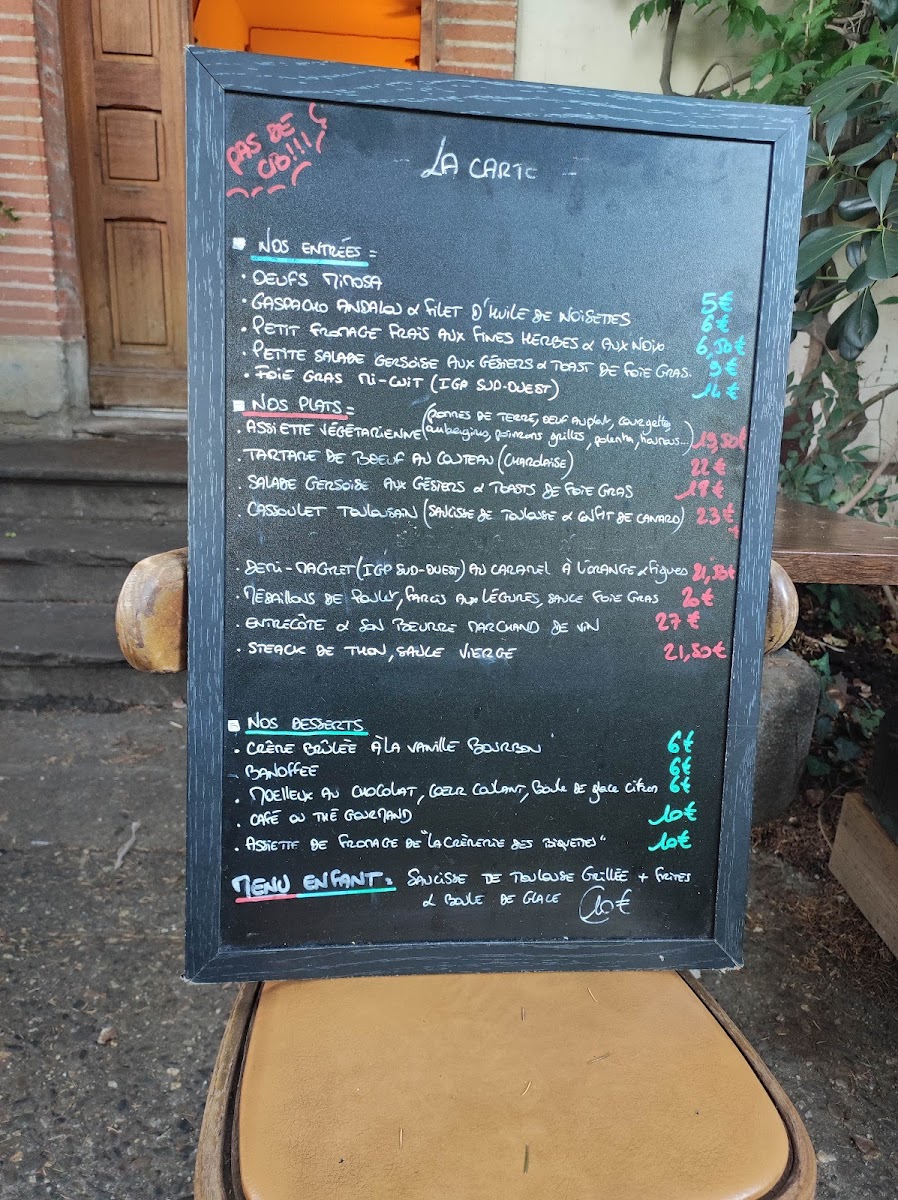 PAS DE
CB!!!
LA CARTE
NOS ENTRÉES =
. OEUFS MIMOSA 5€
. GASPACHO ANDALOU & FILET D'HUILE DE NOISETTES 6€
. PETIT FROMAGE FRAIS AUX FINES HERBES & AUX NOIX 6,50€
. PETITE SALADE GERSOISE AUX GÉSIERS & TOAST DE FOIE GRAS. 9€
. FOIE GRAS MI-CUIT (IGP SUD-OUEST) 14€
NOS PLATS =
(POMMES DE TERRE, OEUF AU PLAT, COURGETTES
. ASSIETTE VÉGÉTARIENNE aubergines, poivrons grillés, polenta, houmous...) 19,50€
. TARTARE DE BOEUF AU COUTEAU (CHAROLAISE) 22€
. SALADE GERSOISE AUX GÉSIERS & TOASTS DE FOIE GRAS 18€
. CASSOULET TOULOUSAIN (SAUCISSE DE TOULOUSE & CONFIT DE CANARD) 23€
. DEMI-MAGRET (IGP SUD-OUEST) AU CARAMEL À L'ORANGE & FIGUES 21,50€
. MÉDAILLONS DE POULET, FARCIS AUX LÉGUMES, SAUCE FOIE GRAS 20€
. ENTRECÔTE & SON BEURRE MARCHAND DE VIN 27€
. STEACK DE THON, SAUCE VIERGE 21,50€
NOS DESSERTS
. CRÈME BRÛLÉE À LA VANILLE BOURBON 6€
BANOFFEE 6€
. MOELLEUX AU CHOCOLAT, COEUR COULANT, BOULE DE glace CITRON 6€
. CAFÉ OU THÉ GOURMAND 10€
. ASSIETTE DE FROMAGE DE "LA CRÈMERIE DES BIQUETTES" 10€
MENU ENFANT = SAUCISSE DE TOULOUSE GRILLÉE + FRITES
& BOULE DE GLACE 10€